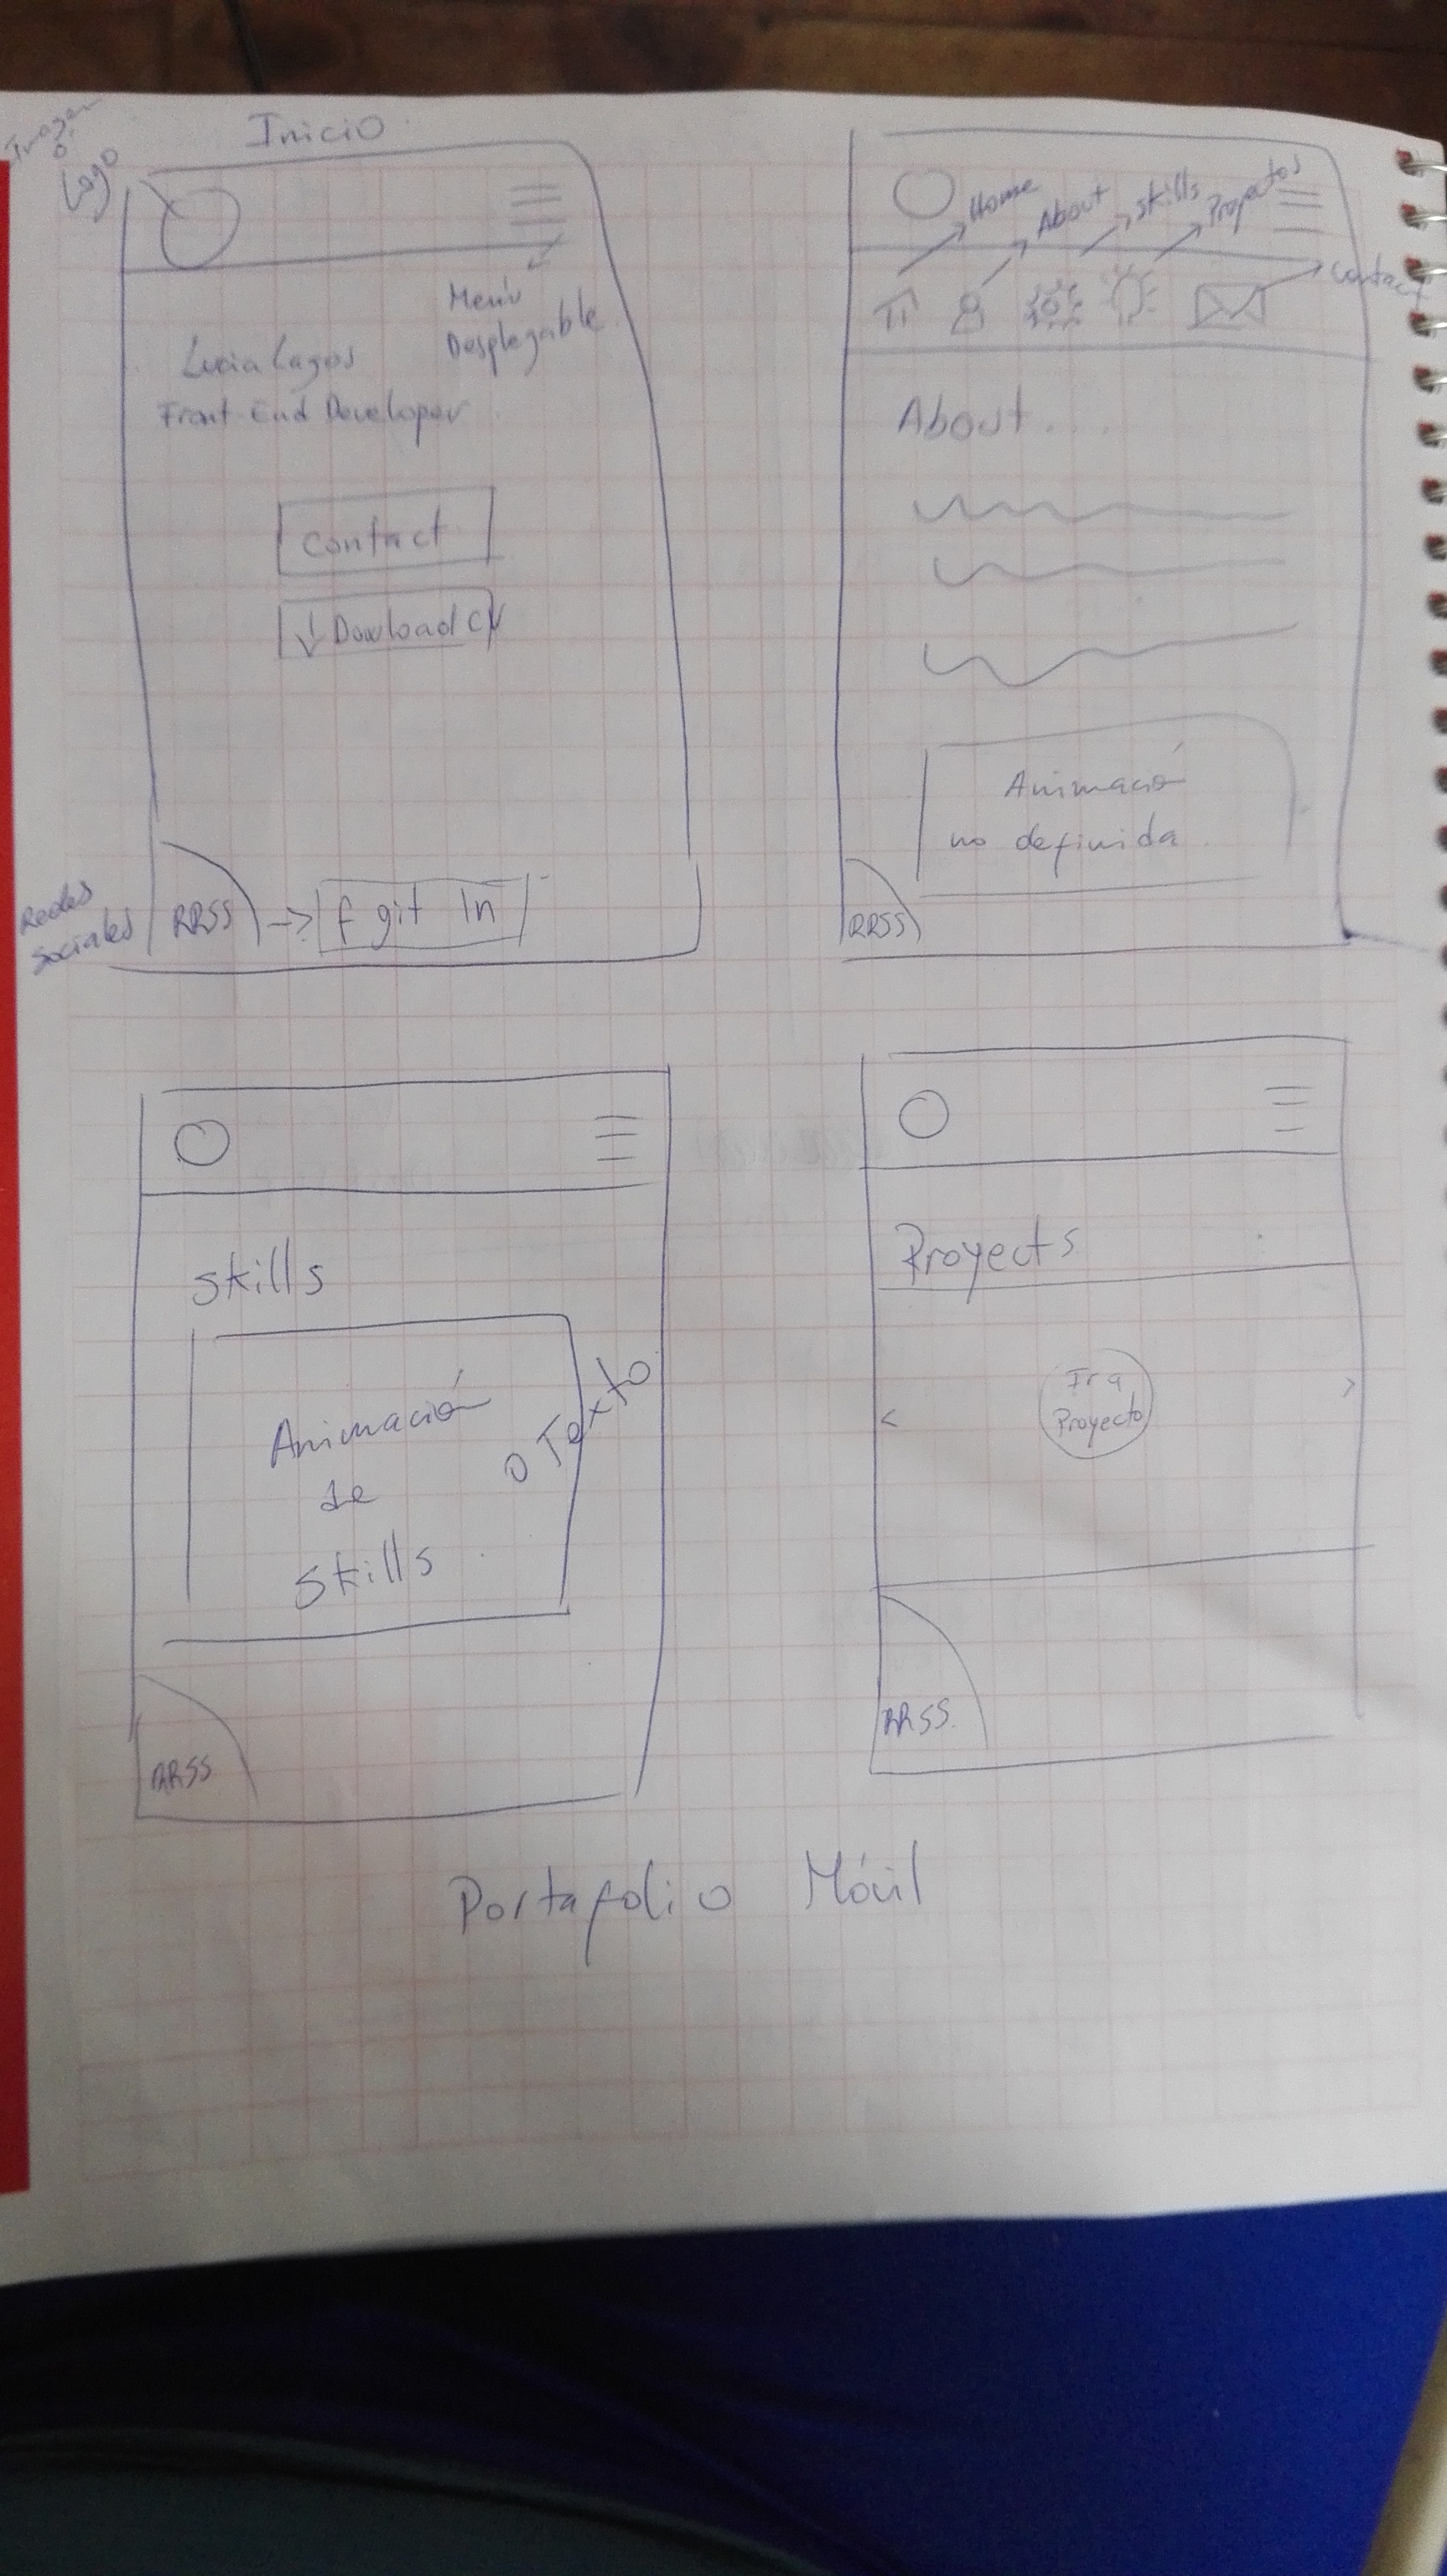 Inicio
Imagen
ó
Logo
Menú
Desplegable
Lucia Lagos
Front-End Developer
Contact
Dowload CV
Redes
Sociales
RRSS
f git In
Home
About
Skills
Proyectos
Contact
About...
Animació
no definida
RRSS
Skills
Animación
de
Skills
o Texto
RRSS
Proyects
Ir a
Proyecto
<
>
RRSS
Portafolio Móvil